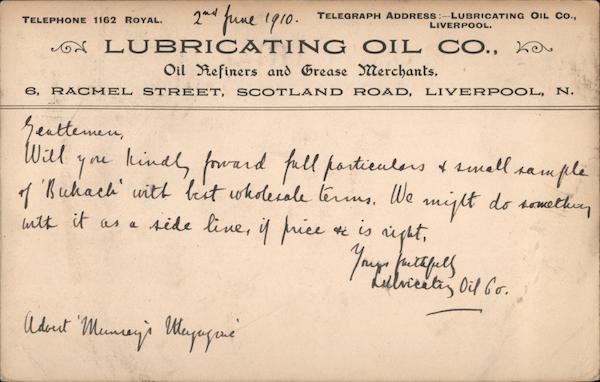 TELEPHONE 1162 ROYAL.
2nd June 1910.
TELEGRAPH ADDRESS:—LUBRICATING OIL CO.,
LIVERPOOL.
LUBRICATING OIL CO.,
Oil Refiners and Grease Merchants,
6, RACHEL STREET, SCOTLAND ROAD, LIVERPOOL, N.
Gentlemen,
Will you kindly forward full particulars & small sample
of 'Buhach' with best wholesale terms. We might do something
with it as a side line, if price &c is right.
Yours faithfully
Lubricating Oil Co.
Advert 'Munsey's Magazine'